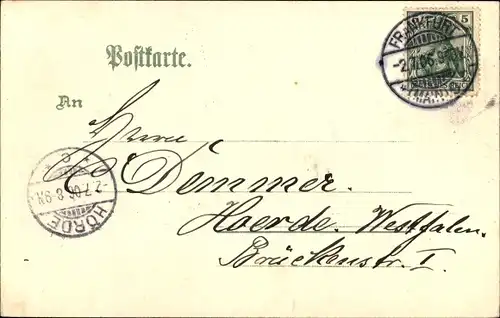 5
FRANKFURT
-2.7.06.
(MAIN)
Postkarte.
An
Herrn
C. Demmer.
Hoerde. Westfalen.
Brückenstr. I.
HÖRDE
-2.7.06.8-9N.